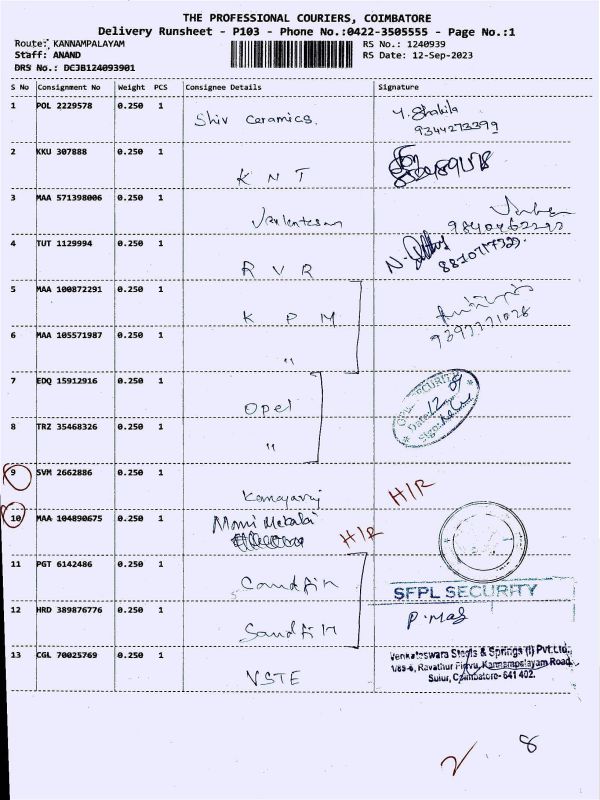 THE PROFESSIONAL COURIERS, COIMBATORE
Delivery Runsheet - P103 - Phone No.:0422-3505555 - Page No.:1
Route: KANNAMPALAYAM RS No.: 1240939
Staff: ANAND RS Date: 12-Sep-2023
DRS No.: DCJB124093901
S No Consignment No Weight PCS Consignee Details Signature
1 POL 2229578 0.250 1 Shiv Ceramics. Y. Shakila
9344273399
2 KKU 307888 0.250 1 K N T
3 MAA 571398006 0.250 1
4 TUT 1129994 0.250 1 R V R
5 MAA 100872291 0.250 1 K P M
6 MAA 105571987 0.250 1 "
7 EDQ 15912916 0.250 1 Opel
8 TRZ 35468326 0.250 1 "
9 SVM 2662886 0.250 1 H/R
10 MAA 104890675 0.250 1 H/R
11 PGT 6142486 0.250 1 Candfin
SFPL SECURITY
12 HRD 389876776 0.250 1 Sandfin P. Mag
13 CGL 70025769 0.250 1 VSTE
Venkateswara Steels & Springs (I) Pvt.Ltd.,
Ravathur Pirivu, Kannampalayam Road,
Sulur, Coimbatore- 641 402.
2 .. 8